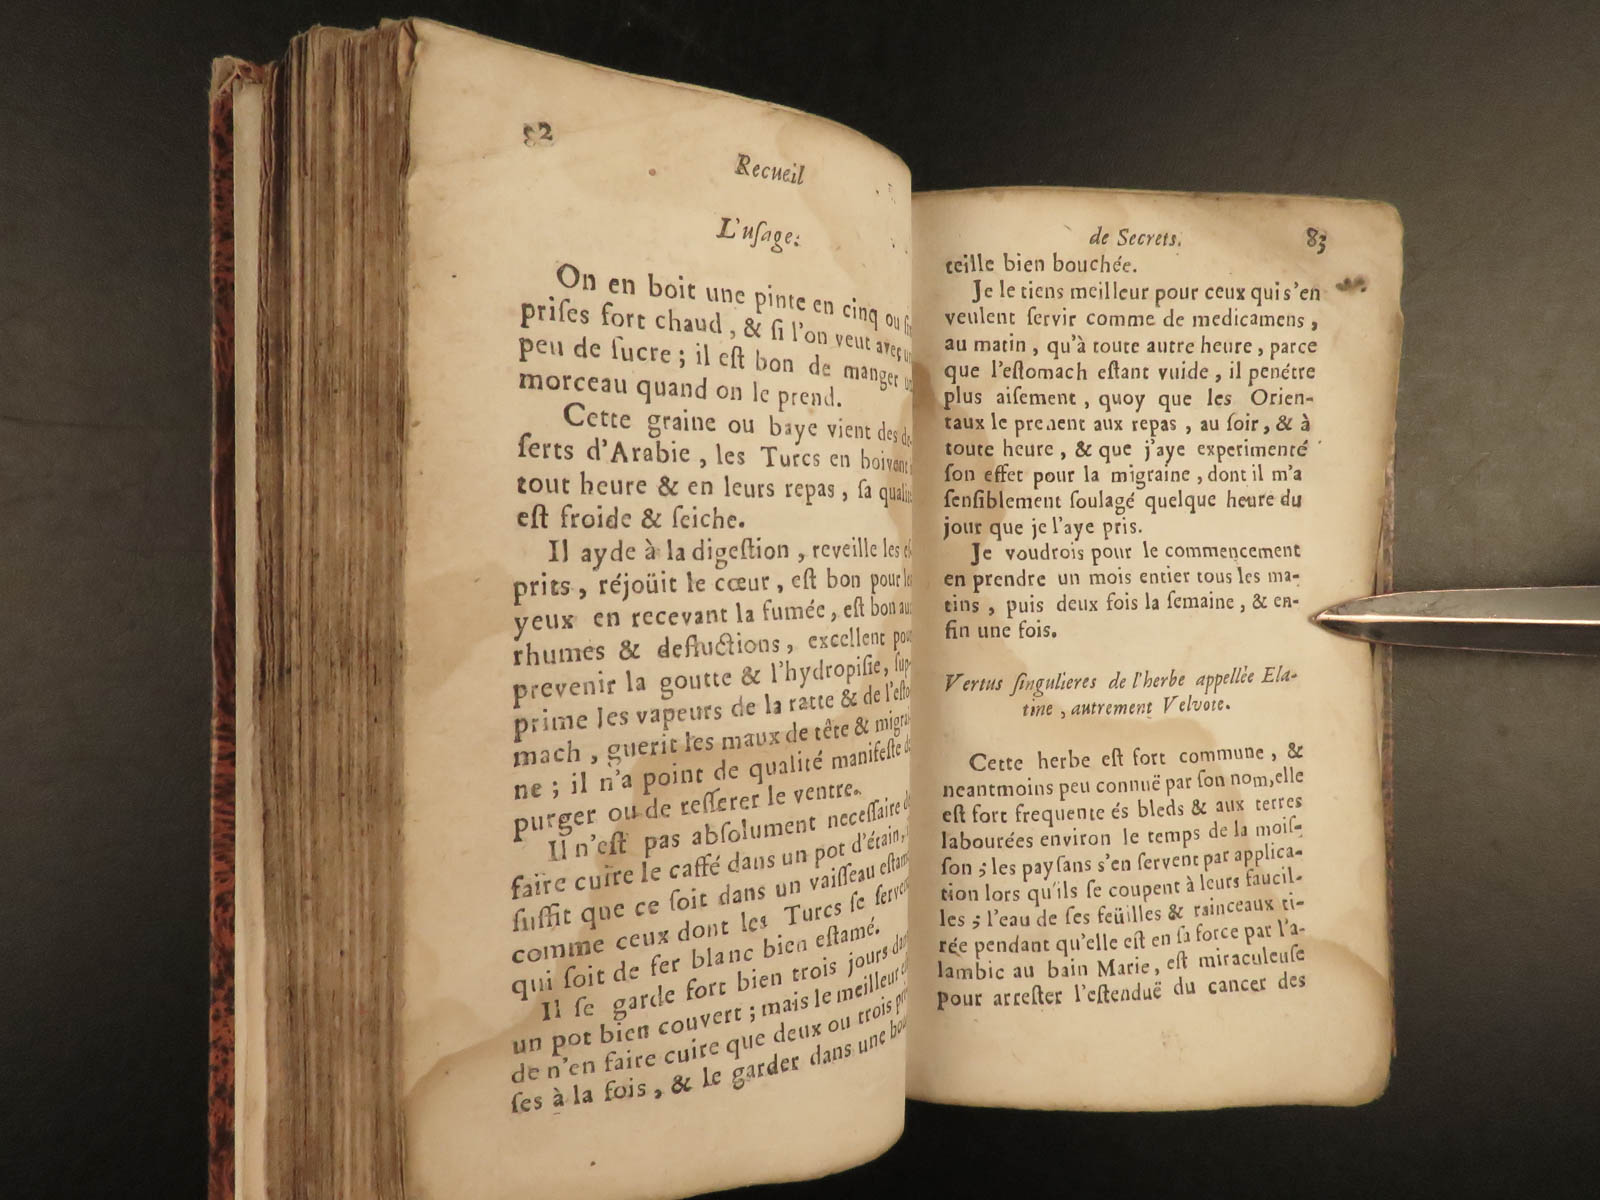 82
Recueil
L'uſage:
On en boit une pinte en cinq ou
priſes fort chaud, & ſi l'on veut avec
peu de ſucre; il eſt bon de manger
morceau quand on le prend.
Cette graine ou baye vient des
ſerts d'Arabie, les Turcs en boivent
tout heure & en leurs repas, ſa
eſt froide & ſeiche.
Il ayde à la digeſtion, reveille les
prits, réjoüit le cœur, eſt bon pour
yeux en recevant la fumée, eſt bon
rhumes & defluctions, excellent
prevenir la goutte & l'hydropiſie,
prime les vapeurs de la ratte & de
mach, guerit les maux de tête &
ne; il n'a point de qualité manifeſte
purger ou de reſſerer le ventre.
Il n'eſt pas abſolument neceſſaire
faire cuire le caffé dans un pot d'étain,
ſuffit que ce ſoit dans un vaiſſeau
comme ceux dont les Turcs ſe
qui ſoit de fer blanc bien eſtamé.
Il ſe garde fort bien trois jours
un pot bien couvert; mais le meilleur
de n'en faire cuire que deux ou trois
ſes à la fois, & le garder dans une
de Secrets.
83
teille bien bouchée.
Je le tiens meilleur pour ceux qui s'en
veulent ſervir comme de medicamens,
au matin, qu'à toute autre heure, parce
que l'eſtomach eſtant vuide, il penétre
plus aiſement, quoy que les Orien-
taux le prenent aux repas, au ſoir, & à
toute heure, & que j'aye experimenté
ſon effet pour la migraine, dont il m'a
ſenſiblement ſoulagé quelque heure du
jour que je l'aye pris.
Je voudrois pour le commencement
en prendre un mois entier tous les ma-
tins, puis deux fois la ſemaine, & en-
fin une fois.
Vertus ſingulieres de l'herbe appellée Ela-
tine, autrement Velvote.
Cette herbe eſt fort commune, &
neantmoins peu connuë par ſon nom, elle
eſt fort frequente és bleds & aux terres
labourées environ le temps de la moiſ-
ſon; les payſans s'en ſervent par applica-
tion lors qu'ils ſe coupent à leurs faucil-
les; l'eau de ſes feüilles & rainceaux ti-
rée pendant qu'elle eſt en ſa force par l'a-
lambic au bain Marie, eſt miraculeuſe
pour arreſter l'eſtenduë du cancer des